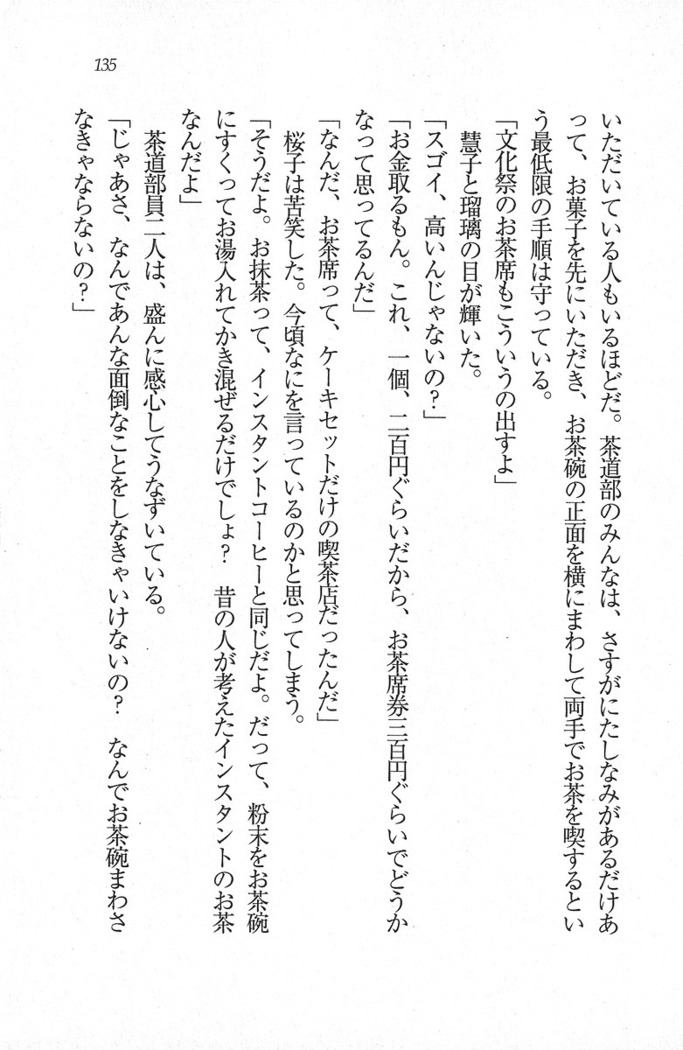 135
いただいている人もいるほどだ。茶道部のみんなは、さすがにたしなみがあるだけあ
って、お菓子を先にいただき、お茶碗の正面を横にまわして両手でお茶を喫するとい
う最低限の手順は守っている。
「文化祭のお茶席もこういうの出すよ」
慧子と瑠璃の目が輝いた。
「スゴイ、高いんじゃないの？」
「お金取るもん。これ、一個、二百円ぐらいだから、お茶席券三百円ぐらいでどうか
なって思ってるんだ」
「なんだ、お茶席って、ケーキセットだけの喫茶店だったんだ」
桜子は苦笑した。今頃なにを言っているのかと思ってしまう。
「そうだよ。お抹茶って、インスタントコーヒーと同じだよ。だって、粉末をお茶碗
にすくってお湯入れてかき混ぜるだけでしょ？　昔の人が考えたインスタントのお茶
なんだよ」
茶道部員二人は、盛んに感心してうなずいている。
「じゃあさ、なんであんな面倒なことをしなきゃいけないの？　なんでお茶碗まわさ
なきゃならないの？」